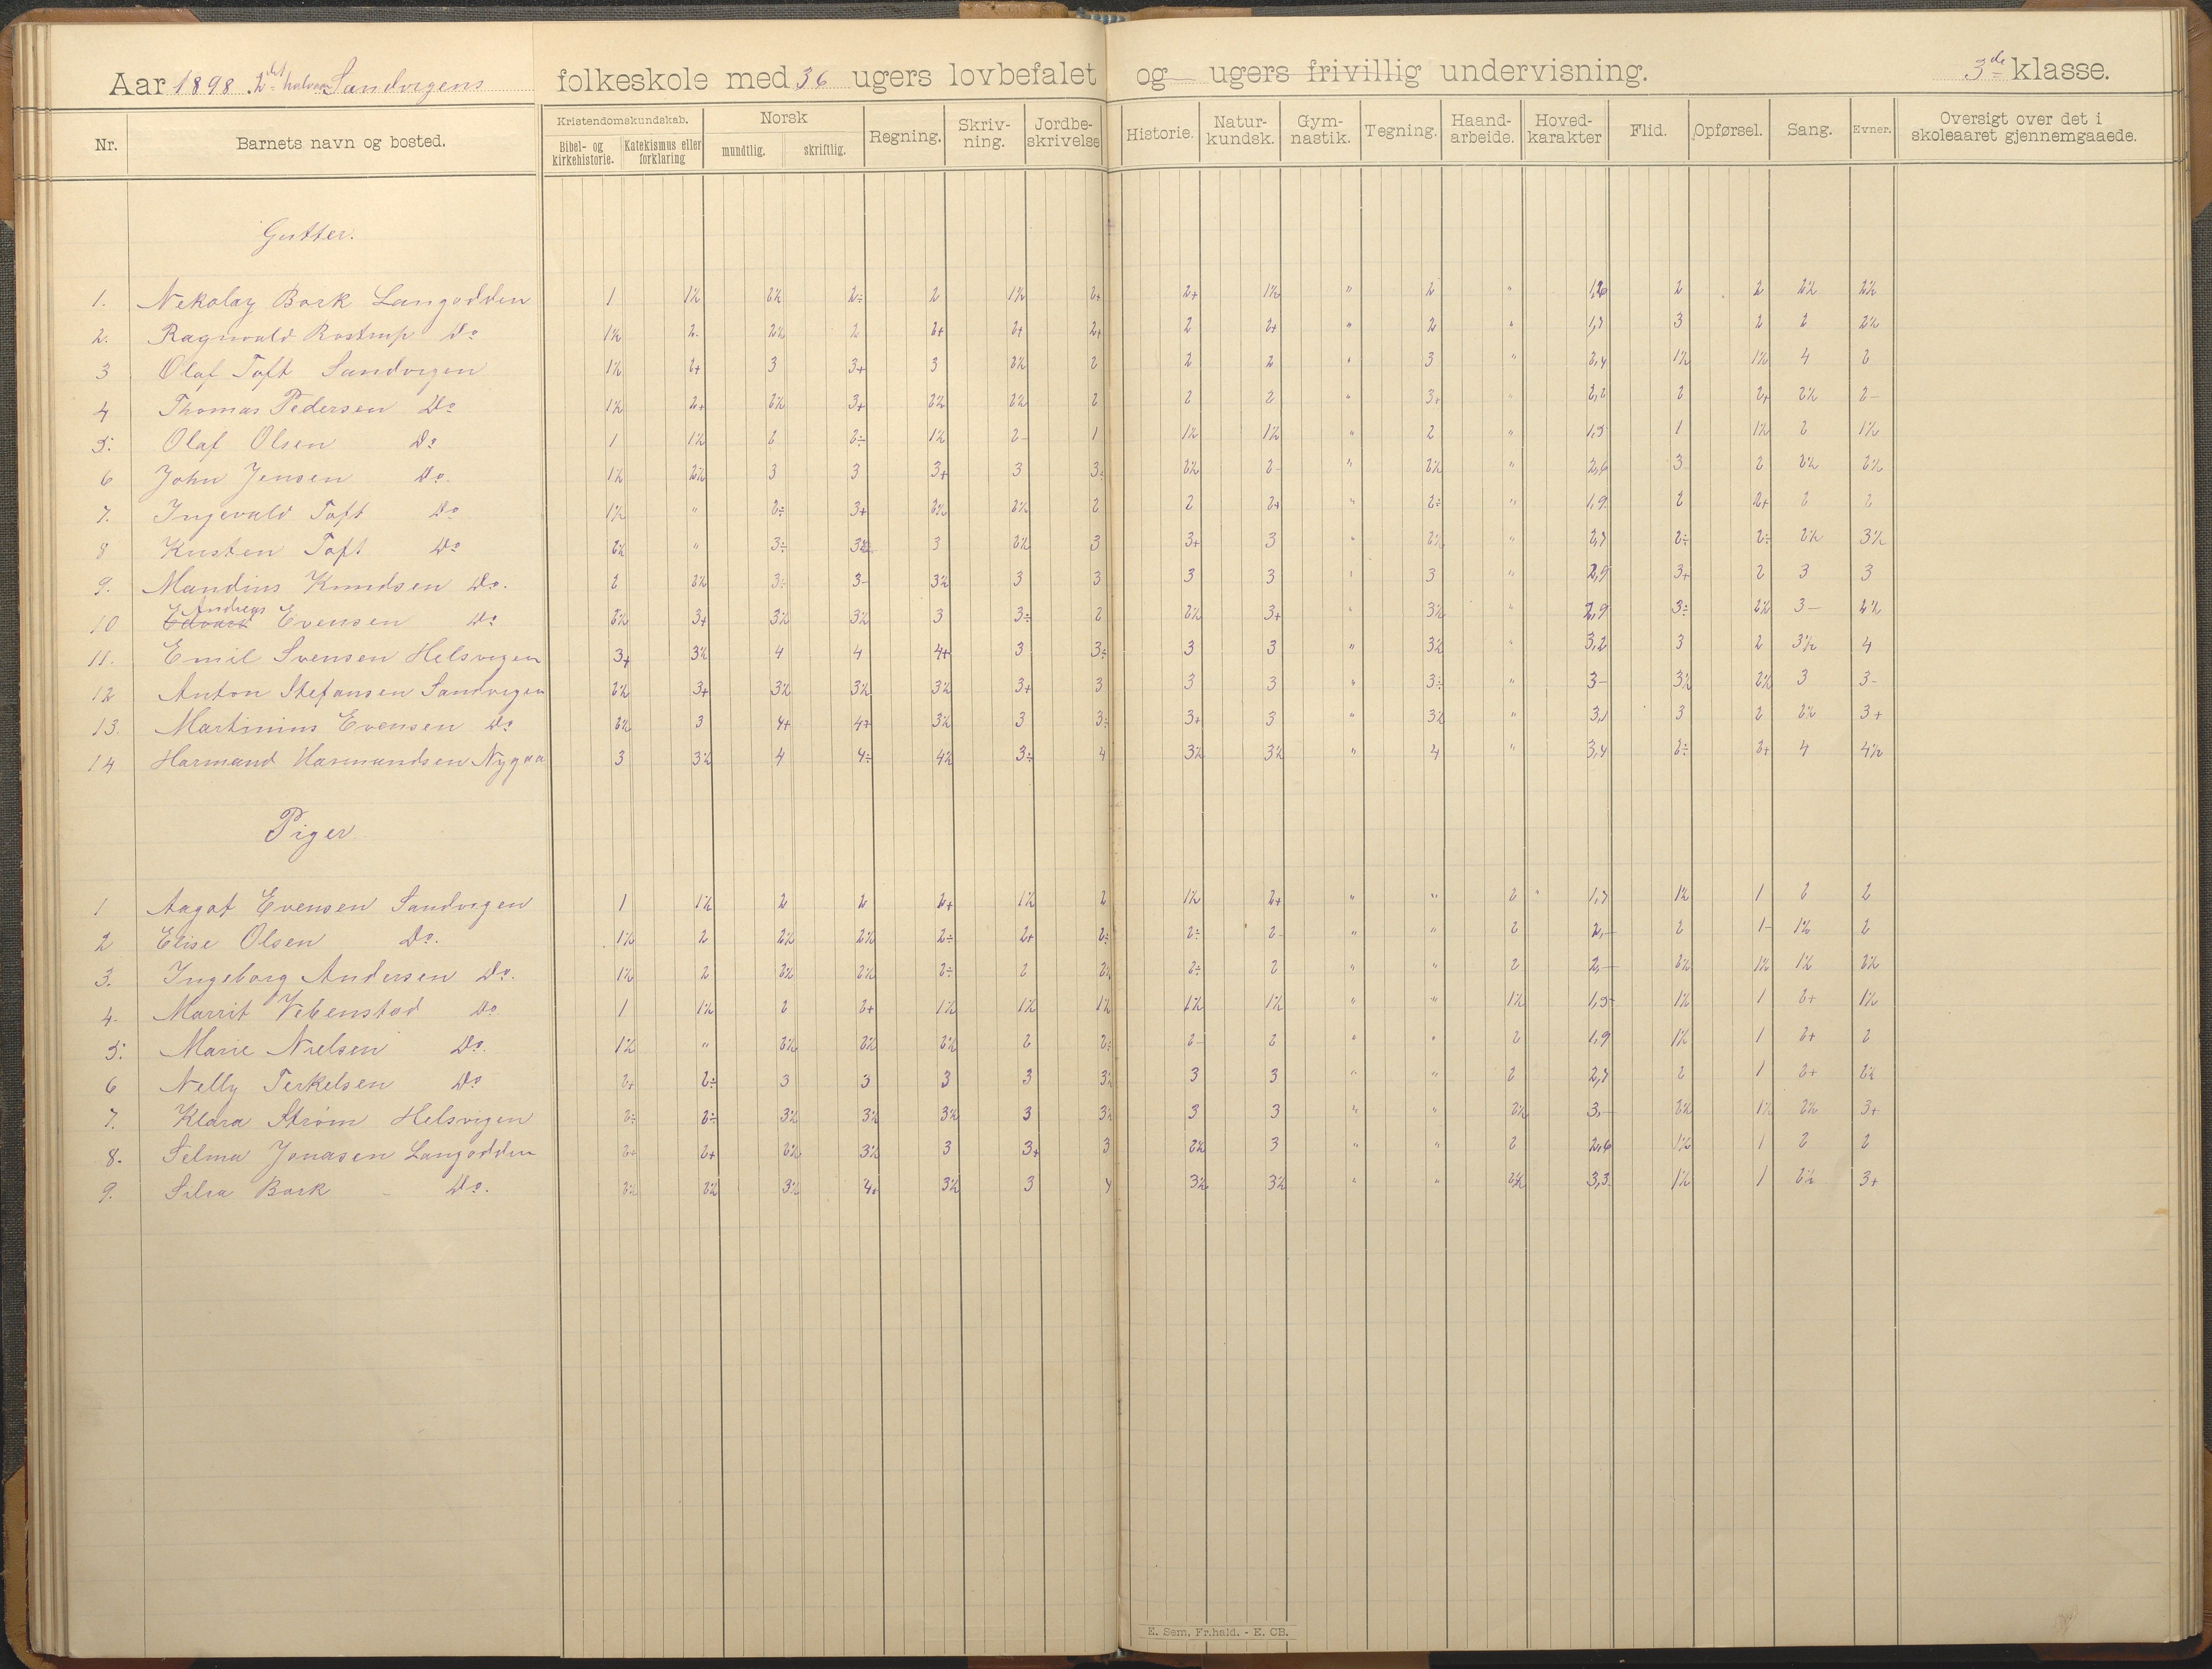 Aar 1898. 2det halvaar Sandvigens folkeskole med 36 ugers lovbefalet og — ugers frivillig undervisning. 3de klasse.
Nr. Barnets navn og bosted. Kristendomskundskab. Norsk Regning. Skriv-ning. Jordbe-skrivelse Historie. Natur-kundsk. Gym-nastik. Tegning. Haand-arbeide. Hoved-karakter Flid. Opførsel. Sang. Evner. Oversigt over det i skoleaaret gjennemgaaede.
Bibel- og kirkehistorie. Katekismus eller forklaring mundtlig. skriftlig.
Gutter.
1. Nekolay Bork Langodden 1 1½ 2½ 2÷ 2 1½ 2+ 2+ 1½ " 2 " 1,6 2 2 2½ 2½
2. Ragnvald Rostrup Do 1½ 2- 2½ 2 2+ 2+ 2+ 2 2+ " 2 " 1,7 3 2 2 2½
3 Olaf Toft Sandvigen 1½ 2+ 3 3+ 3 2½ 2 2 2 " 3 " 2,4 1½ 1½ 4 2
4 Thomas Pedersen Do 1½ 2+ 2½ 3+ 2½ 2½ 2 2 2 " 3+ " 2,2 2 2+ 2½ 2-
5. Olaf Olsen Do 1 1½ 2 2÷ 1½ 2- 1 1½ 1½ " 2 " 1,5 1 1½ 2 1½
6 John Jensen Do. 1½ 2½ 3 3 3+ 3 3÷ 2½ 2- " 2½ " 2,6 3 2 2½ 2½
7. Ingevald Toft Do 1½ " 2÷ 3+ 2½ 2½ 2 2 2+ " 2÷ " 1,9 2 2+ 2 2
8 Kristen Toft Do 2½ " 3÷ 3½ 3 2½ 3 3+ 3 " 2½ " 2,7 2÷ 2÷ 2½ 3½
9. Mandius Knudsen Do. 2 2½ 3÷ 3- 3½ 3 3 3 3 " 3 " 2,9 3+ 2 3 3
10 Edvard Andreas Evensen Do 2½ 3+ 3½ 3½ 3 3÷ 2 2½ 3+ " 3½ " 2,9 3÷ 2½ 3- 2½
11. Emil Svensen Helsvigen 3+ 3½ 4 4 4+ 3 3÷ 3 3 " 3½ " 3,2 3 2 3½ 4
12 Anton Stefansen Sandvigen 2½ 3+ 3½ 3½ 3½ 3+ 3 3 3 " 3÷ " 3- 3½ 2½ 3 3-
13. Martinius Evensen Do 2½ 3 4+ 4+ 3½ 3 3÷ 3+ 3 " 3½ " 3,1 3 2 2½ 3+
14 Harmand Harmandsen Nygaa 3 3½ 4 4÷ 4½ 3÷ 4 3½ 3½ " 4 " 3,4 2÷ 2+ 4 4½
Piger
1 Aagot Evensen Sandvigen 1 1½ 2 2 2+ 1½ 2 1½ 2+ " " 2 " 1,7 1½ 1 2 2
2 Elise Olsen Do. 1½ 2 2½ 2½ 2÷ 2+ 2÷ 2÷ 2- " " 2 2,- 2 1- 1½ 2
3. Ingeborg Andersen Do. 1½ 2 2½ 2½ 2÷ 2 2½ 2÷ 2 " " 2 2,- 2½ 1½ 1½ 2½
4. Marrit Vebenstad Do 1 1½ 2 2+ 1½ 1½ 1½ 1½ 1½ " " 1½ 1,5 1½ 1 2+ 1½
5. Marie Nielsen Do. 1½ " 2½ 2½ 2½ 2 2÷ 2- 2 " " 2 1,9 1½ 1 2+ 2
6 Nelly Terkelsen Do 2+ 2÷ 3 3 3 3 3½ 3 3 " " 2 2,7 2 1 2+ 2½
7. Klara Strøm Helsvigen 2÷ 2÷ 3½ 3½ 3½ 3 3½ 3 3 " " 2½ 3,- 2½ 1½ 2½ 3+
8. Selma Jonasen Langodden 2+ 2+ 2½ 3½ 3 3+ 3 2½ 3 " " 2 2,6 1½ 1 2 2
9. Silva Bork Do. 2½ 2½ 3½ 4+ 3½ 3 4 3½ 3½ " " 2½ 3,3 1½ 1 2½ 3+
E. Sem, Fr.hald. - E. CB.